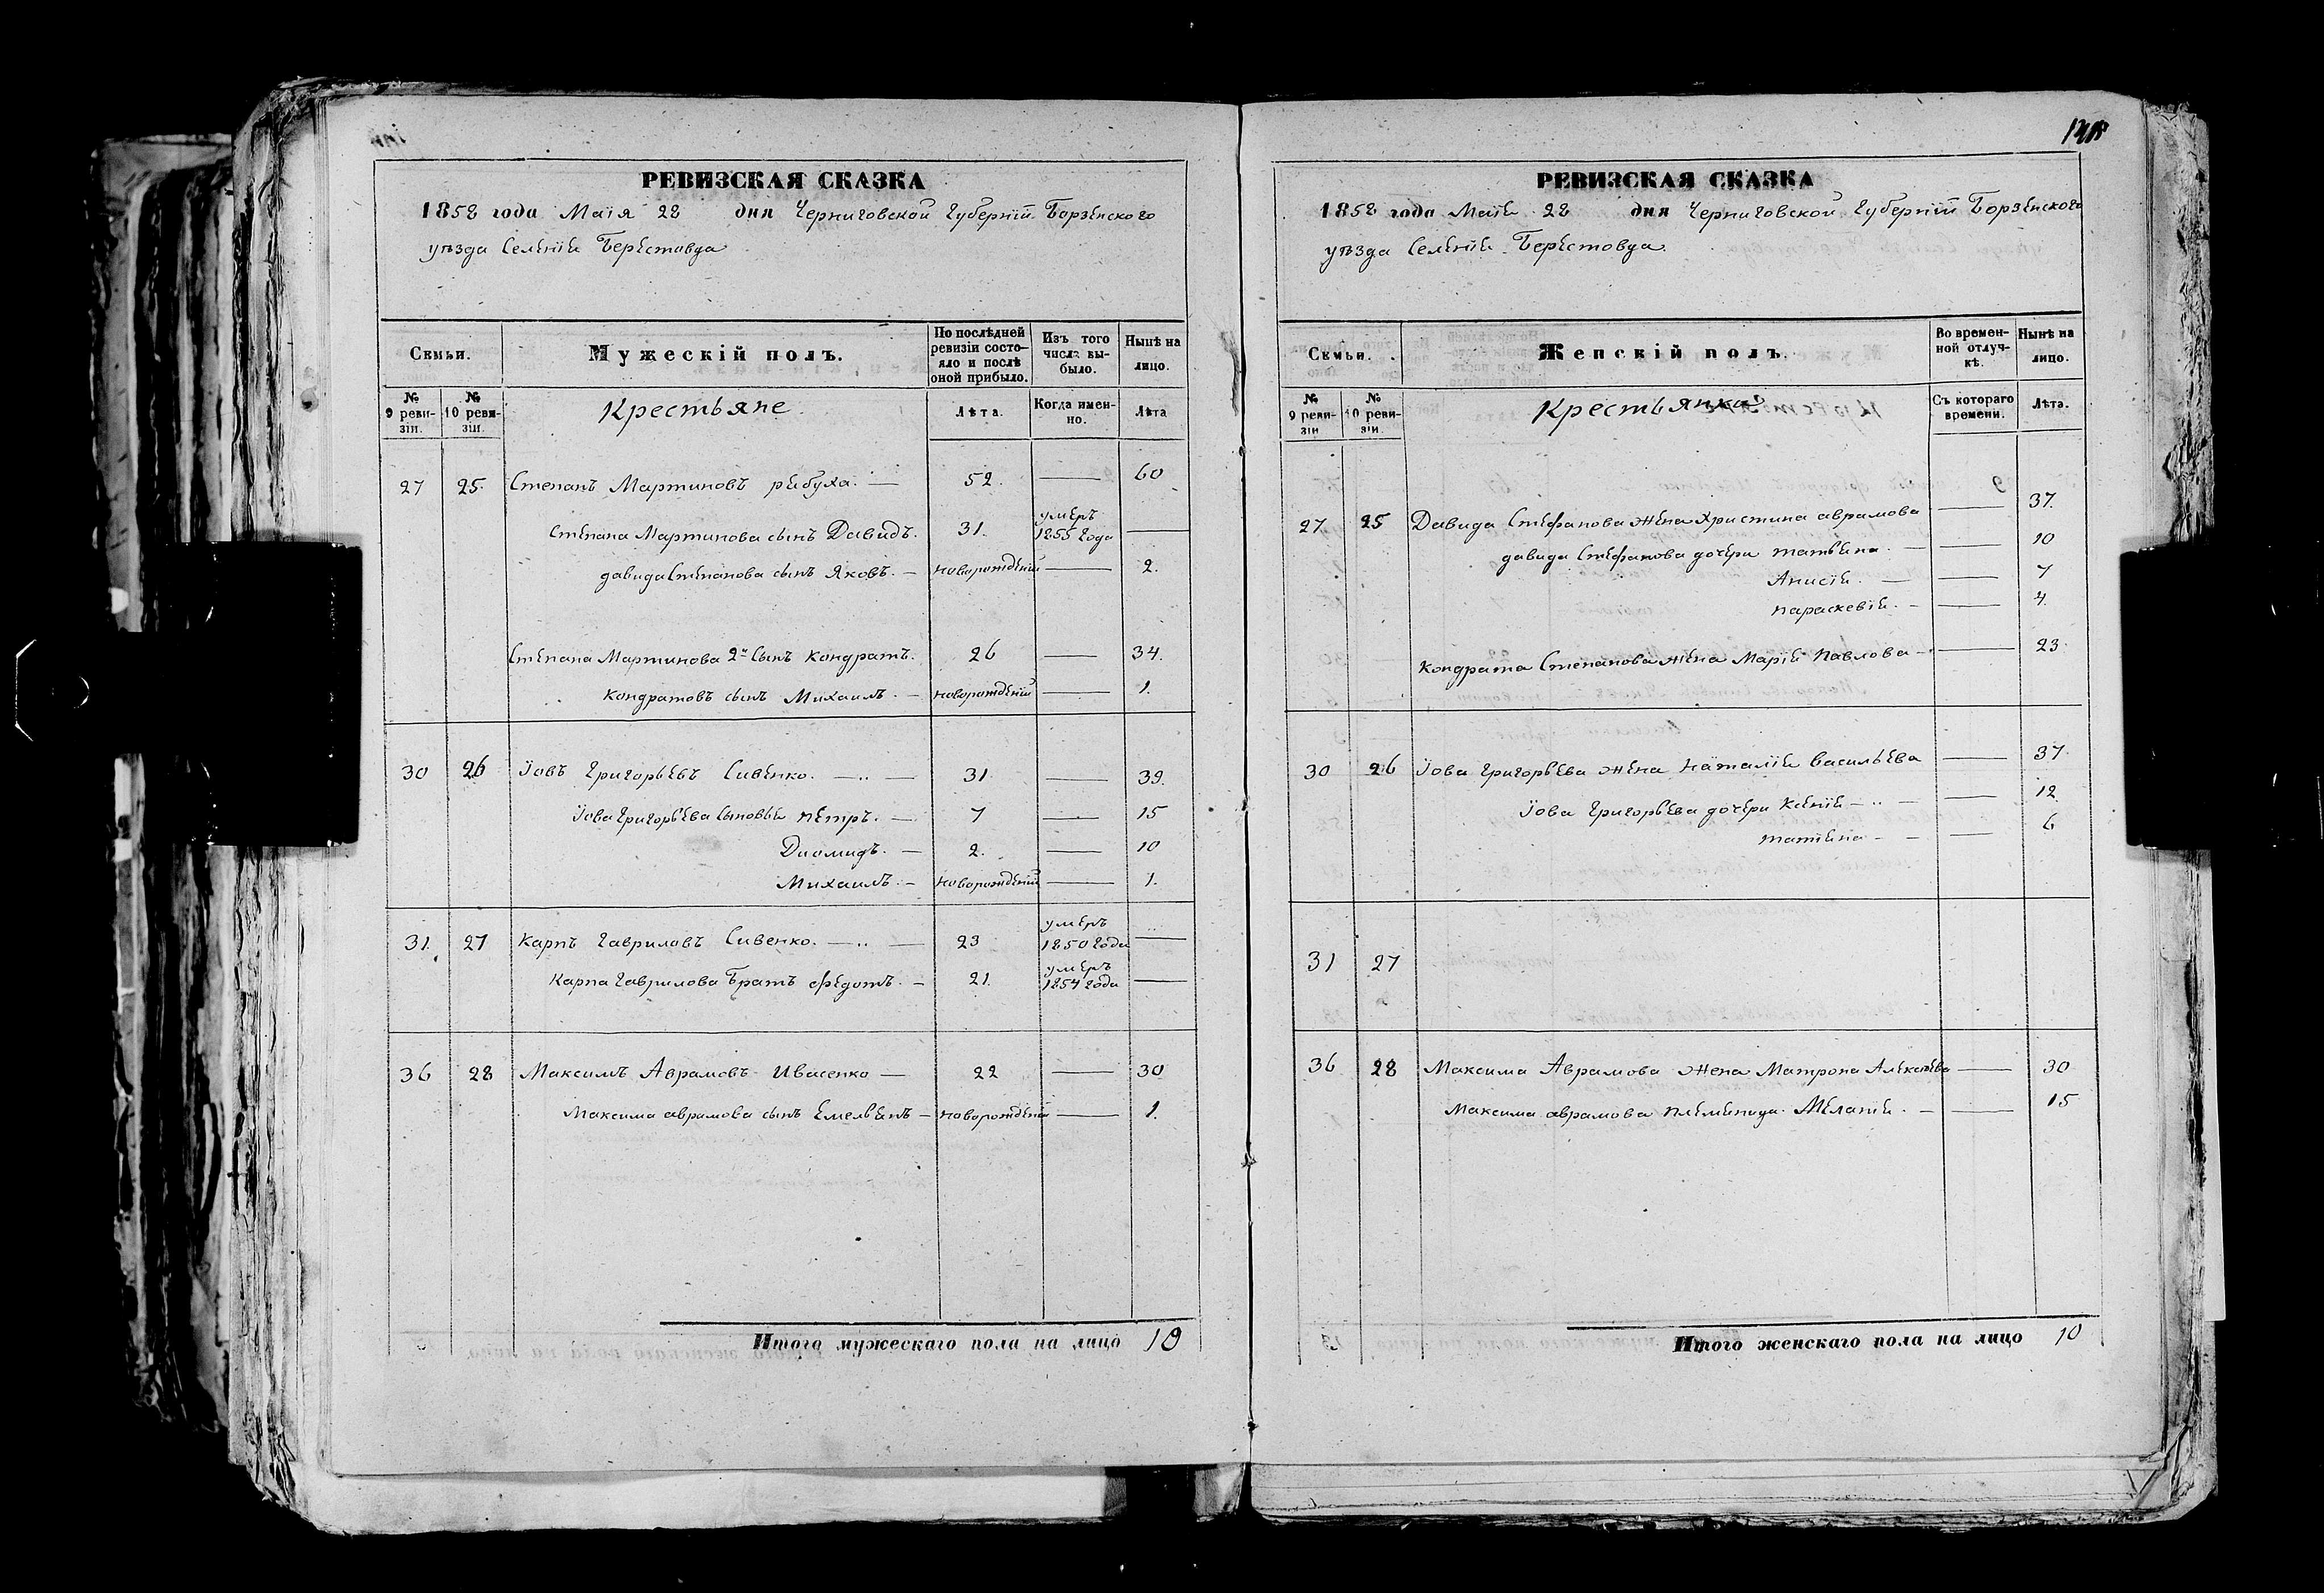 РЕВИЗСКАЯ СКАЗКА
1858 года Маія 28 дня Черниговской Губерніи Борзенского
уѣзда Селенія Берестовца
Семьи.
Мужескій полъ.
По послѣдней ревизіи состояло и послѣ оной прибыло.
Изъ того числа выбыло.
Нынѣ на лицо.
№ 9 ревизіи.
№ 10 ревизіи.
Крестьяне
Лѣта.
Когда именно.
Лѣта
27 25. Степанъ Мартиновъ рябуха. — 52. — 60
Степана Мартинова сынъ Давидъ. 31. умеръ 1855 года —
давида Степанова сынъ Яковъ. — новорожденій — 2.
Степана Мартинова 2й сынъ Кондратъ. 26 — 34.
Кондратовъ сынъ Михаилъ. — новорожденій — 1.
30 26 Іовъ Григорьевъ Сивенко. — 31 — 39.
Іова Григорьева сыновья петръ. — 7 — 15
Диомидъ. — 2. — 10
Михаилъ. — новорожденій — 1.
31. 27 Карпъ Гавриловъ Сивенко. — 23 умеръ 1850 года —
Карпа Гаврилова братъ Федотъ. — 21. умеръ 1854 года —
36 28 Максимъ Аврамовъ Ивасенко — 22 — 30
Максима аврамова сынъ Емельянъ — новорожденій — 1.
Итого мужескаго пола на лицо 10
РЕВИЗСКАЯ СКАЗКА
1858 года Маія 28 дня Черниговской Губерніи Борзенского
уѣзда Селенія Берестовца.
Семьи.
Женскій полъ.
Во временной отлучкѣ.
Нынѣ на лицо.
№ 9 ревизіи
№ 10 ревизіи.
Крестьянки
Съ котораго времени.
Лѣта.
27 25 Давида Стефанова жена Христина аврамова — 37.
давида Стефанова дочери татьяна. — 10
Анисія. — 7
параскевія. — 4.
Кондрата Степанова жена Марія Павлова — 23
30 26 Іова Григорьева жена Наталія васильева — 37.
Іова Григорьева дочери Ксенія — 12
татяна — 6
31 27
36 28 Максима Аврамова жена Матрона Алексѣева — 30
Максима аврамова племеница Меланія. — 15
Итого женскаго пола на лицо 10